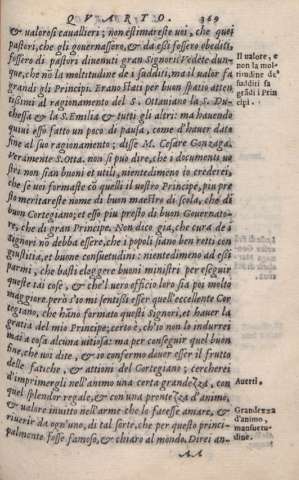 QVARTO. 369
& valorosi cauallieri; non estimareste voi, che quei
pastori, che gli gouernassero, & da essi fossero obediti,
fossero di pastori diuenuti gran Signori? Vedete dun-
que, che nō la moltitudine de i sudditi, ma il valor fa
grandi gli Principi. Erano stati per buon spatio atten-
tissimi al ragionamento del S. Ottauiano la S. Du-
chessa & la S. Emilia & tutti gli altri: ma hauendo
quiui esso fatto un poco di pausa, come d'hauer dato
fine al suo ragionamento; disse M. Cesare Gonzaga.
Veramente S. Otta. non si può dire, che i documenti uo
stri non sian buoni et utili, nientedimeno io crederei,
che se uoi formaste cō quelli il uostro Principe, piu pre
sto meritareste nome di buon maestro di scola, che di
buon Cortegiano; et esso piu presto di buon Gouernato-
re, che di gran Principe. Non dico già, che cura de i
signori nō debba essere, che i popoli sian ben retti con
giustitia, et buone consuetudini: nientedimeno ad essi
parmi, che basti eleggere buoni ministri per esseguir
queste tai cose, & che'l uero officio loro sia poi molto
maggiore. però s'io mi sentissi esser quell'eccellente Cor
tegiano, che hāno formato questi Signori, et hauer la
gratia del mio Principe; certo è, ch'io non lo indurrei
mai a cosa alcuna uitiosa: ma per conseguir quel buon
fine, che uoi dite, & io confermo douer esser il frutto
delle fatiche, & attioni del Cortegiano; cercherei
d'imprimergli nell'animo una certa grandezza, con
quel splendor regale, & con una prontezza d'animo,
& ualore inuitto nell'arme che lo facesse amare, &
riuerir da ogn'uno, di tal sorte, che per questo princi-
palmente fosse famoso, & chiaro al mondo. Direi an-
Il ualore, e
non la mol-
titudine de
sudditi fa
grādi i Prin
cipi.
Auerti.
Grandezza
d'animo,
mansuetu-
dine.